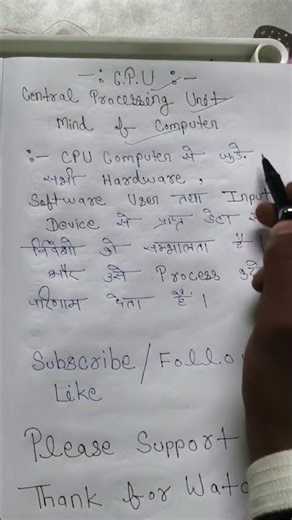 -: C.P.U :-
Central Processing Unit
Mind of Computer
:- CPU Computer से जुड़े
सभी Hardware,
Software User तथा Input
Device से प्राप्त डेटा
को सम्भालता है।
और उसे Process
परिणाम देता है।
Subscribe / Follo
Like
Please Support
Thank for Watc